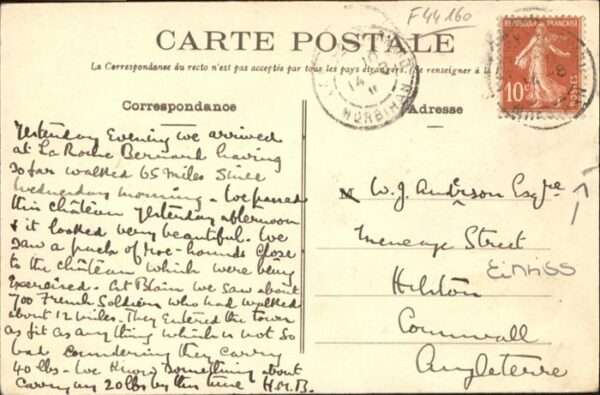 F44160
CARTE POSTALE
La Correspondance du recto n'est pas acceptée par tous les pays étrangers. (Se renseigner à la
Correspondance
Adresse
MORBIHAN
14
10c
Yesterday Evening we arrived
at La Roche Bernard having
so far walked 65 miles since
Wednesday morning. We passed
this château yesterday afternoon
& it looked very beautiful. We
saw a pack of roe-hounds close
to the château which were being
Exercised. At Blain we saw about
700 French Soldiers who had walked
about 12 miles. They entered the town
as fit as anything which is not so
bad considering they carry
40 lbs. We know something about
carrying 20 lbs by this time. H.M.B.
W. J. Anderson Esqre
Meneage Street
Helston
Cornwall
Angleterre
Einriss